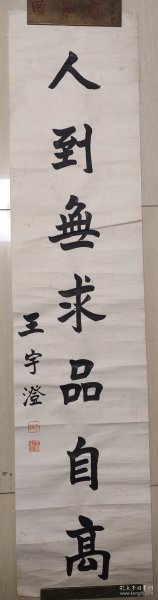 人到無求品自高
王宇澄